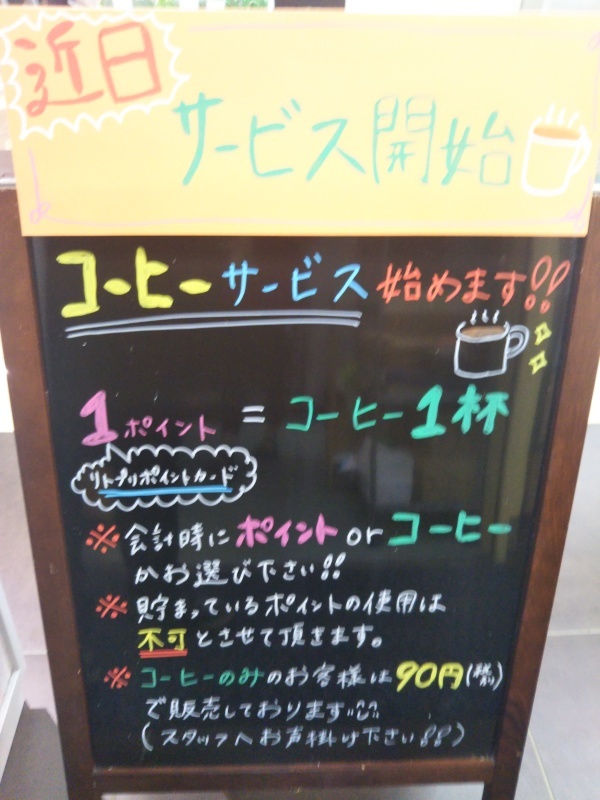 近日
サービス開始
コーヒーサービス始めます!!
1ポイント = コーヒー1杯
リトプリポイントカード
※会計時にポイントorコーヒー
かお選び下さい!!
※貯まっているポイントの使用は
不可とさせて頂きます。
※コーヒーのみのお客様は90円(税別)
で販売しております
(スタッフへお声掛け下さい!!)